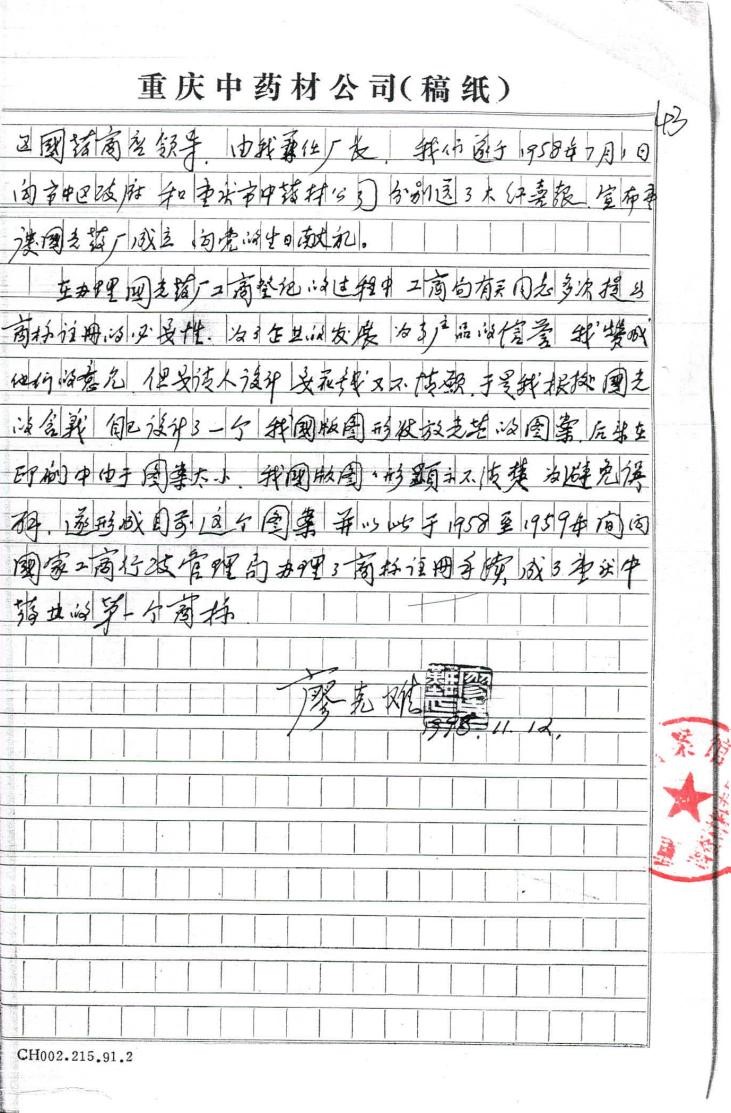 重庆中药材公司(稿纸)
43
区國药商店领导，由我兼任厂长，我们遂于1958年7月1日
向市中区政府和重庆市中药材公司分别送了大红喜报，宣布重
庆國光药厂成立，向党的生日献礼。
在办理國光药厂工商登记的过程中工商局有关同志多次提出
商标注册的必要性，为了企业的发展为了产品的信誉我赞成
他们的意见，但要请人设计要花钱又不情愿，于是我根据國光
的含義自己设计了一个我國版图形状放光芒的图案，后来在
印刷中由于图案太小，我國版图形顯示不清楚为避免误
解，遂形成目前这个图案并以此于1958至1959年间向
國家工商行政管理局办理了商标注册手續，成了重庆中
药业的第一个商标
廖克难
1998.11.12.
CH002.215.91.2